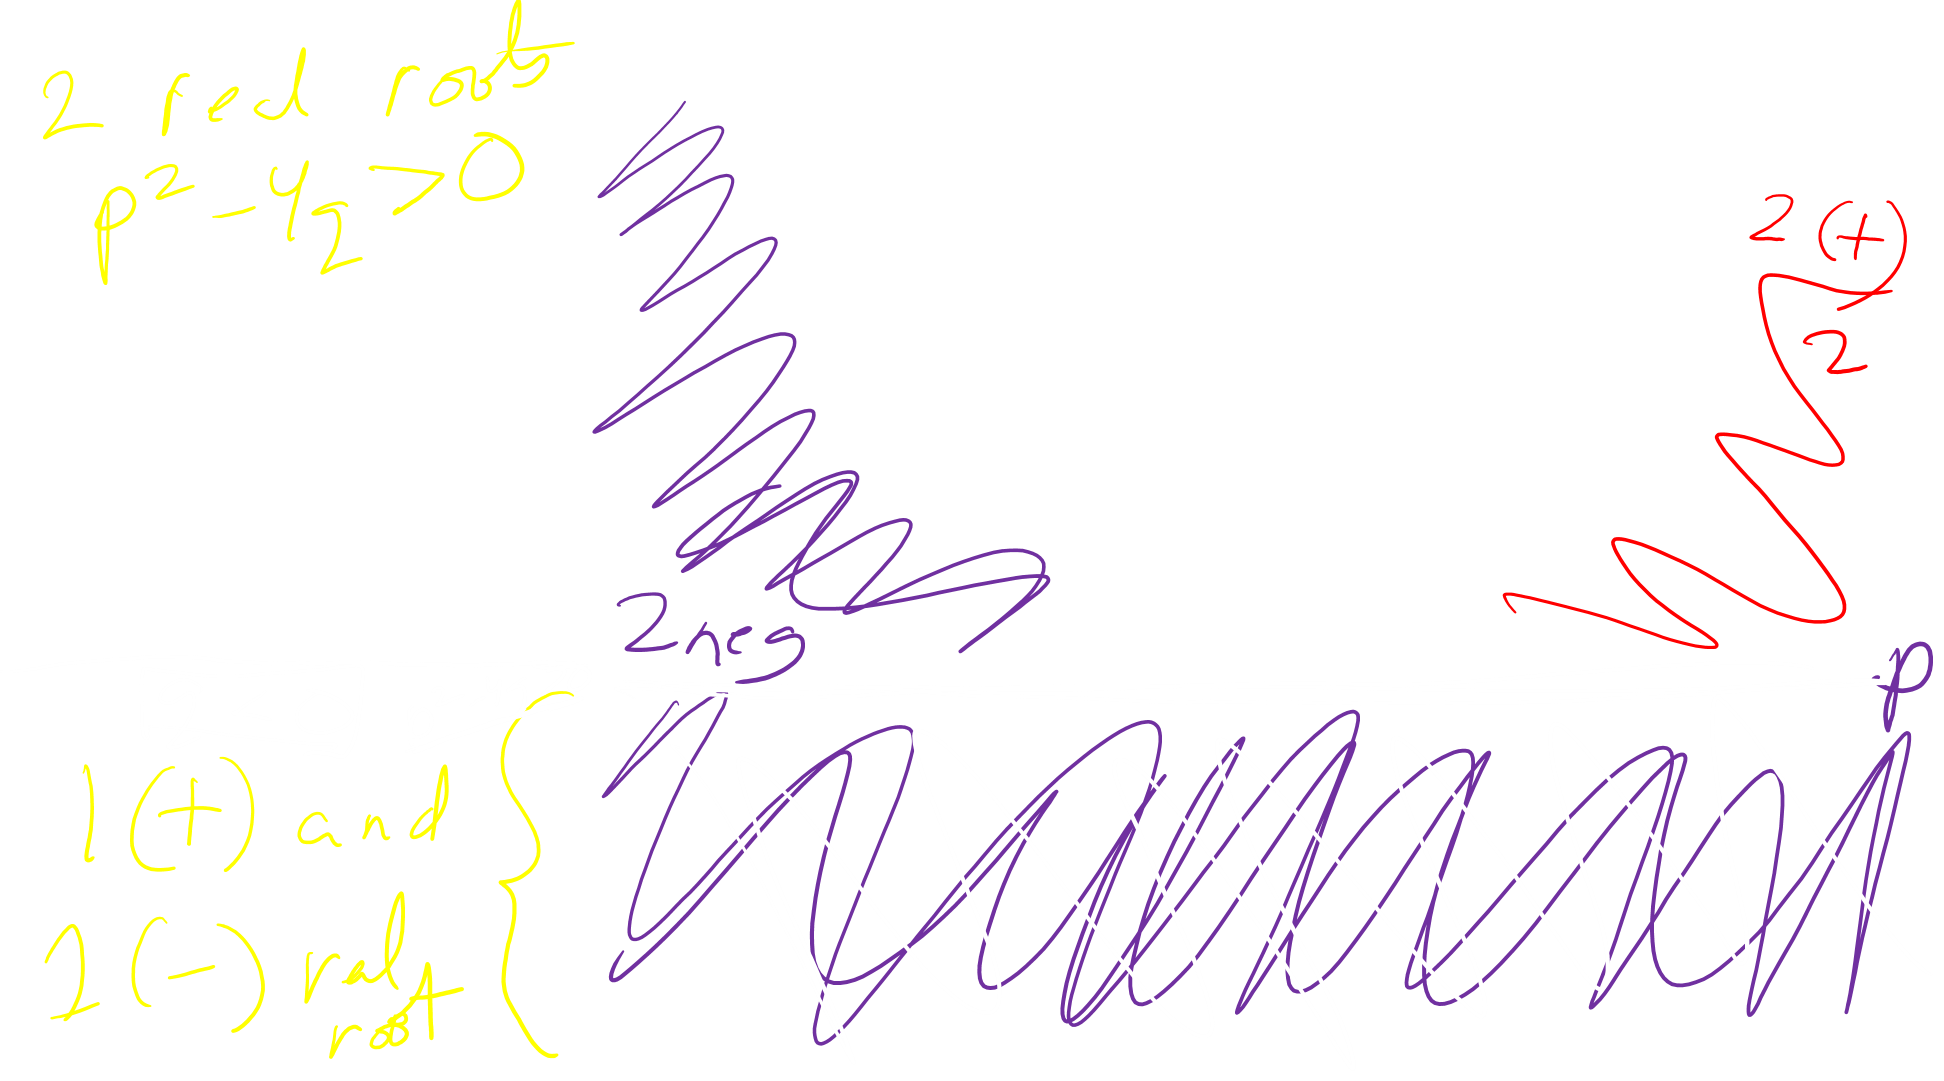 2 real roots
p² - 4q > 0
2 (+)
2
2 neg
p
1 (+) and
1 (-) real
root